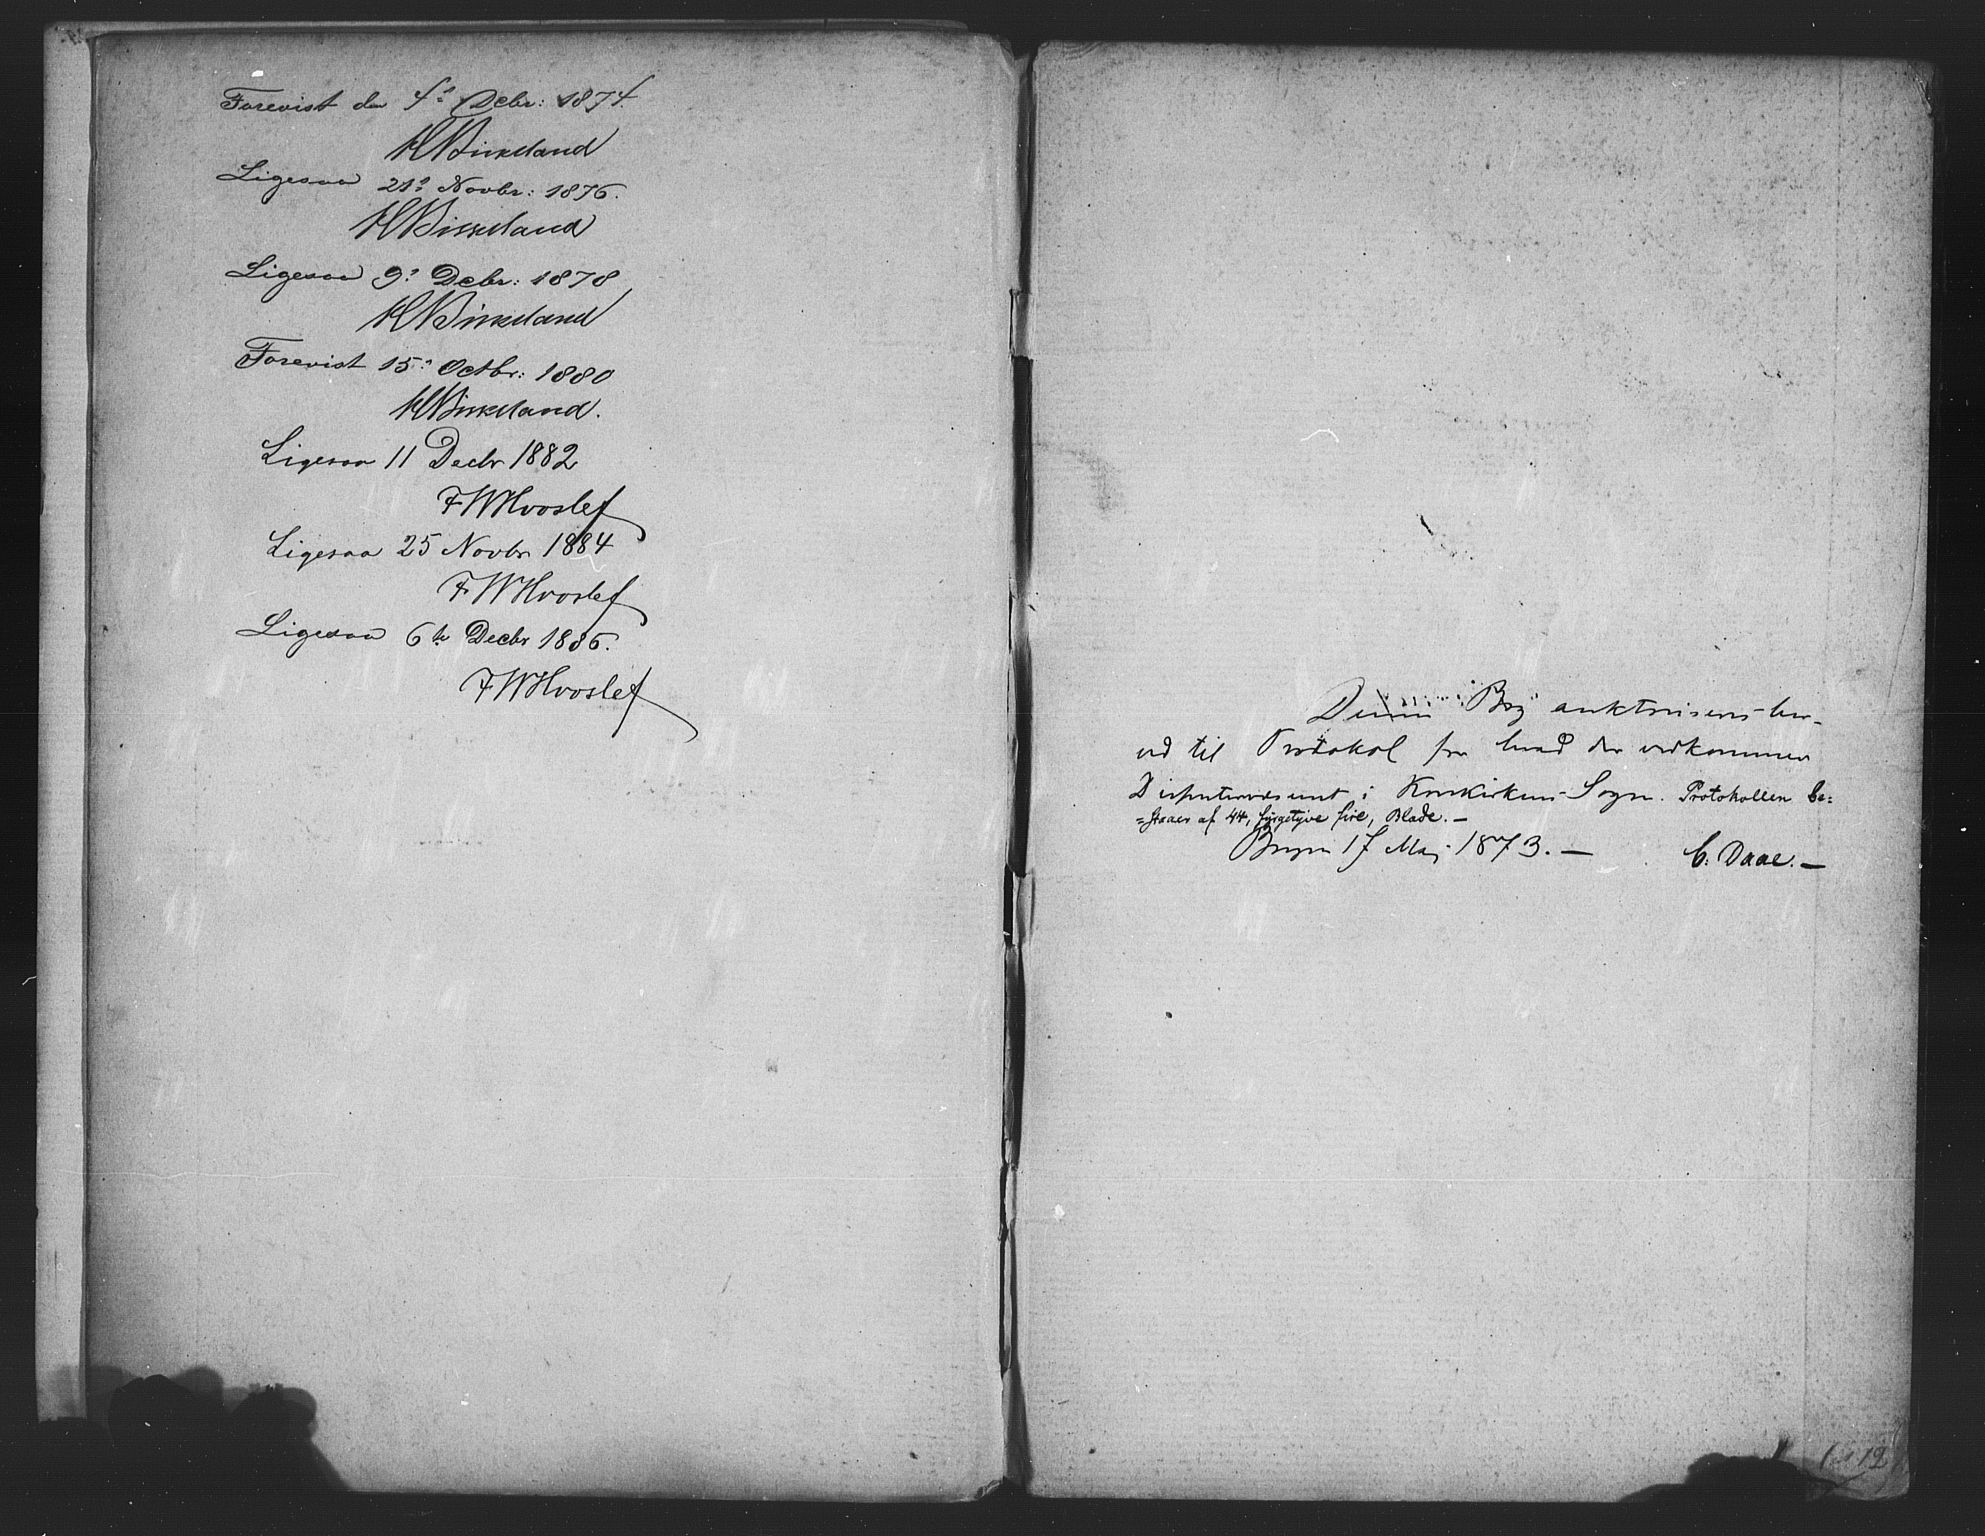 Forevist den 4de Decbr: 1874.
HNBirkeland
Ligesaa 21de Novbr: 1876.
HNBirkeland
Ligesaa 9de Decbr: 1878
HNBirkeland
Forevist 15de Octbr: 1880
HNBirkeland.
Ligesaa 11 Decbr 1882
FWHvoslef
Ligesaa 25 Novbr 1884
FWHvoslef
Ligesaa 6te Decbr 1886.
FWHvoslef
Denne Bog auktoriseres her-
ved til Protokol for hvad der vedkommer
i Korskirkens Sogn. Protokollen be=
=staaer af 44, fyrgetyve fire, Blade. —
17 Maj 1873. — C. Daae. —
12